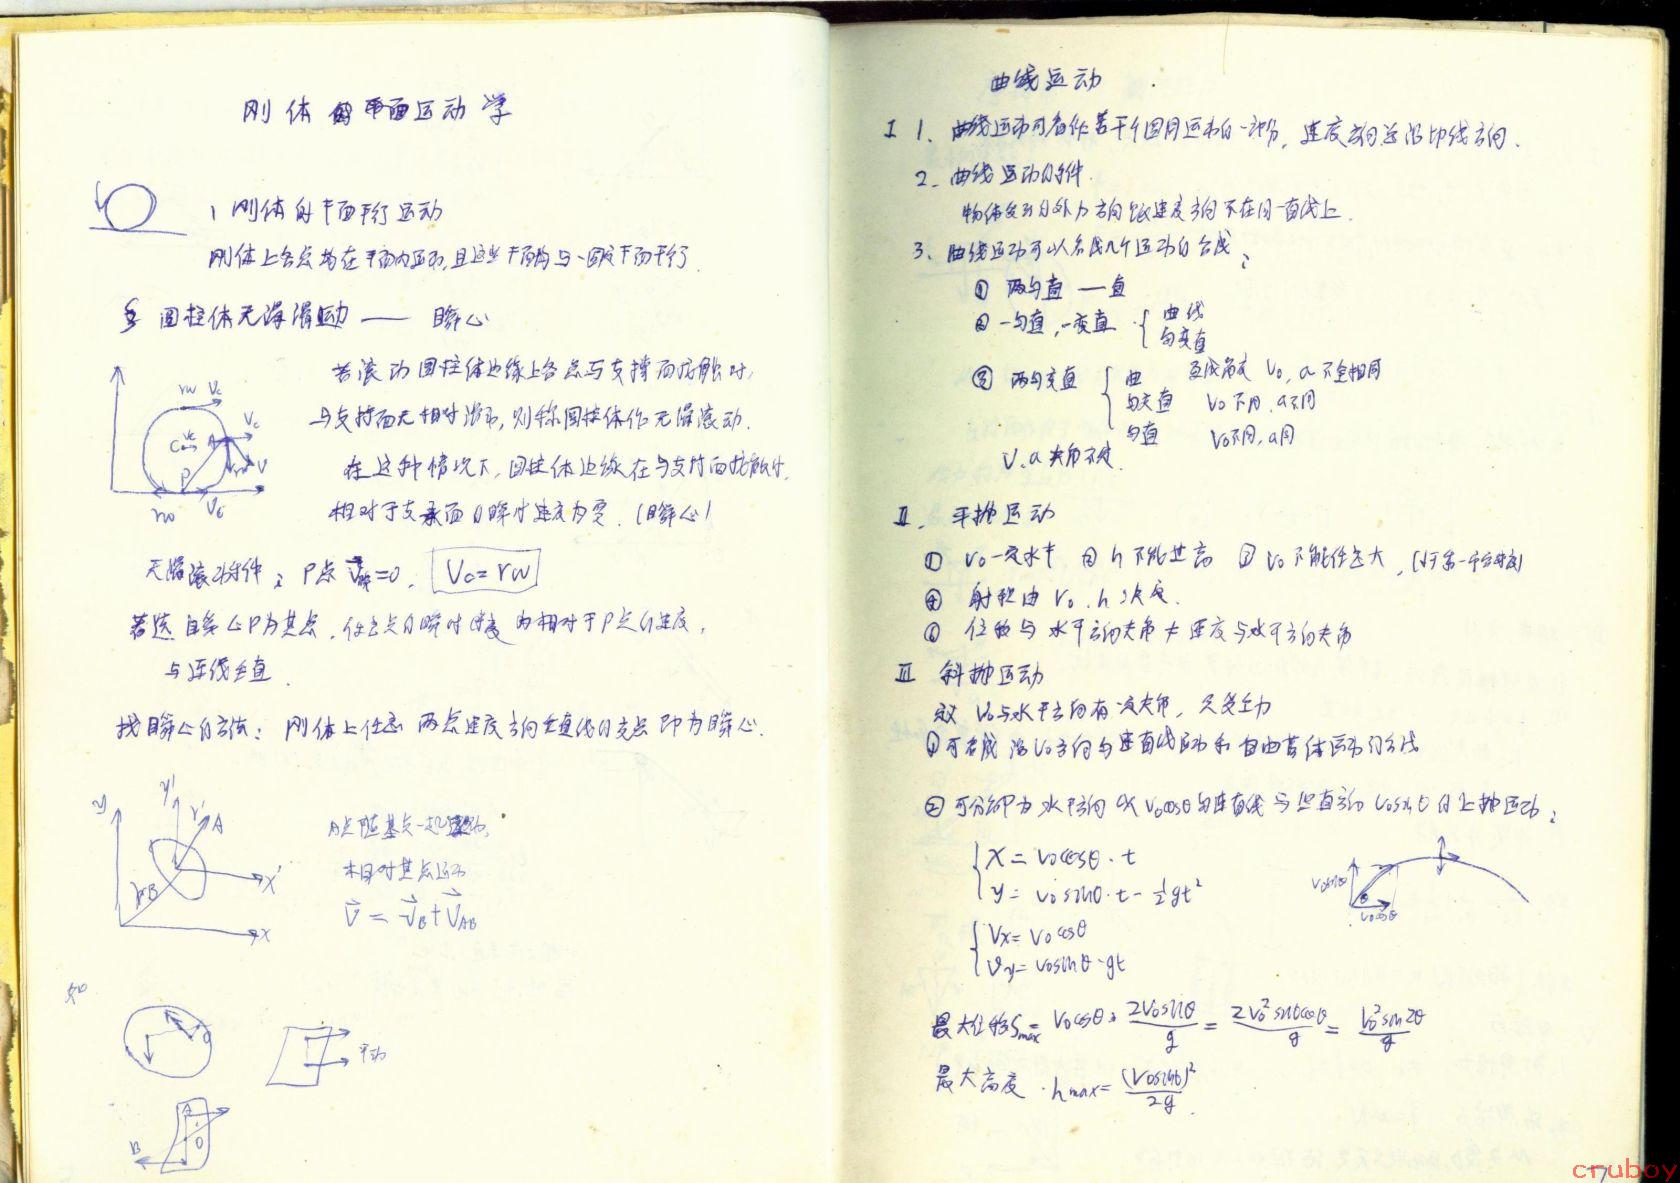 刚体的平面运动学
1 刚体的平面平行运动
刚体上各点均在平面内运动,且这些平面均与一固定平面平行.
圆柱体无滑滚动 —— 瞬心
若滚动圆柱体边缘上各点与支撑面接触时,
与支持面无相对滑动,则称圆柱体作无滑滚动.
在这种情况下,圆柱体边缘在与支撑面接触时,
相对于支承面的瞬时速度为零.(瞬心)
rω Vc
C Vc A Vc
rω V
P
rω Vc
无滑滚动条件; P点 V瞬=0. Vc=rω
若选瞬心P为基点,任意点的瞬时速度为相对于P点的速度,
与连线垂直.
找瞬心的方法: 刚体上任意两点速度方向垂直线的交点即为瞬心.
y y' r' A
rB x'
x
A点随基点一起运动,
相对基点运动
V = VB + VAB
如
平动
A
O
B
曲线运动
I 1、曲线运动可看作若干个圆周运动的一部分, 速度方向总沿切线方向.
2、曲线运动的条件
物体受到的外力方向跟速度方向不在同一直线上.
3、曲线运动可以看成几个运动的合成;
① 两匀直 — 直
② 一匀直,一变直 { 曲线
匀变直
③ 两匀变直 { 曲 V0, a 不全相同
匀变直 V0不同,a不同
匀直 V0不同,a同
V、a 夹角不定.
II、平抛运动
① V0一定水平 ② h不能过高 ③ V0不能任意大,
④ 射程由 V0、h 决定.
⑥ 位移与水平方向夹角≠速度与水平方向夹角
III 斜抛运动
V0与水平方向有一定夹角, 只受重力
①可看成沿V0方向匀速直线运动和自由落体运动的合成
② 可分解为水平方向以V0cosθ匀速直线与竖直方向V0sinθ的上抛运动;
{ x = V0cosθ·t
y = V0sinθ·t - ½gt²
{ Vx= V0cosθ
Vy= V0sinθ-gt
V0sinθ
θ
V0cosθ
最大位移Smax= V0cosθ· 2V0sinθ/g = 2V0²sinθcosθ/g = V0²sin2θ/g
最大高度 · hmax= (V0sinθ)²/2g
cruboy